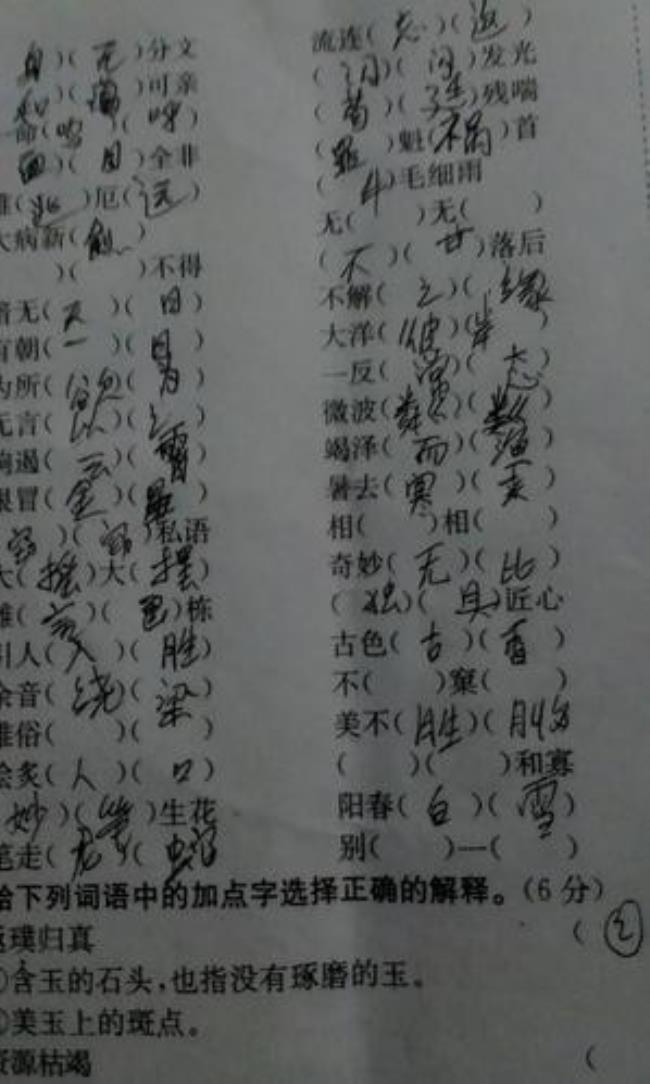 身)(无)分文
和)(蔼)可亲
命(呜)(呼)
面)(目)全非
)厄(远)
大病新(愈)
)(  )不得
暗无(天)(日)
有朝(一)(日)
为所(欲)(为)
无言(以)(
响遏(云)(霄)
艰冒(金)(星)
窃)(窃)私语
大(摇)大(摆)
雕(
)栋
引人(入)(胜)
余音(绕)(梁)
雅俗(  )(  )
脍炙(人)(口)
妙)(笔)生花
笔走(龙)(蛇)
给下列词语中的加点字选择正确的解释。(6分)
返璞归真 (②
①含玉的石头,也指没有琢磨的玉。
②美玉上的斑点。
资源枯竭 (
流连(忘)(返)
(闪)(闪)发光
(苟)(延)残喘
(罪)魁(祸)首
(牛)毛细雨
无(  )无(  )
(不)(甘)落后
不解(之)(缘
大洋(彼)(岸)
一反(常)(态)
微波(粼)(粼)
竭泽(而)(渔)
暑去(寒)(来)
相(  )相(  )
奇妙(无)(比)
(独)(具)匠心
古色(古)(香)
不(  )窠(  )
美不(胜)(收)
(  )(  )和寡
阳春(白)(雪)
别(  )一(  )